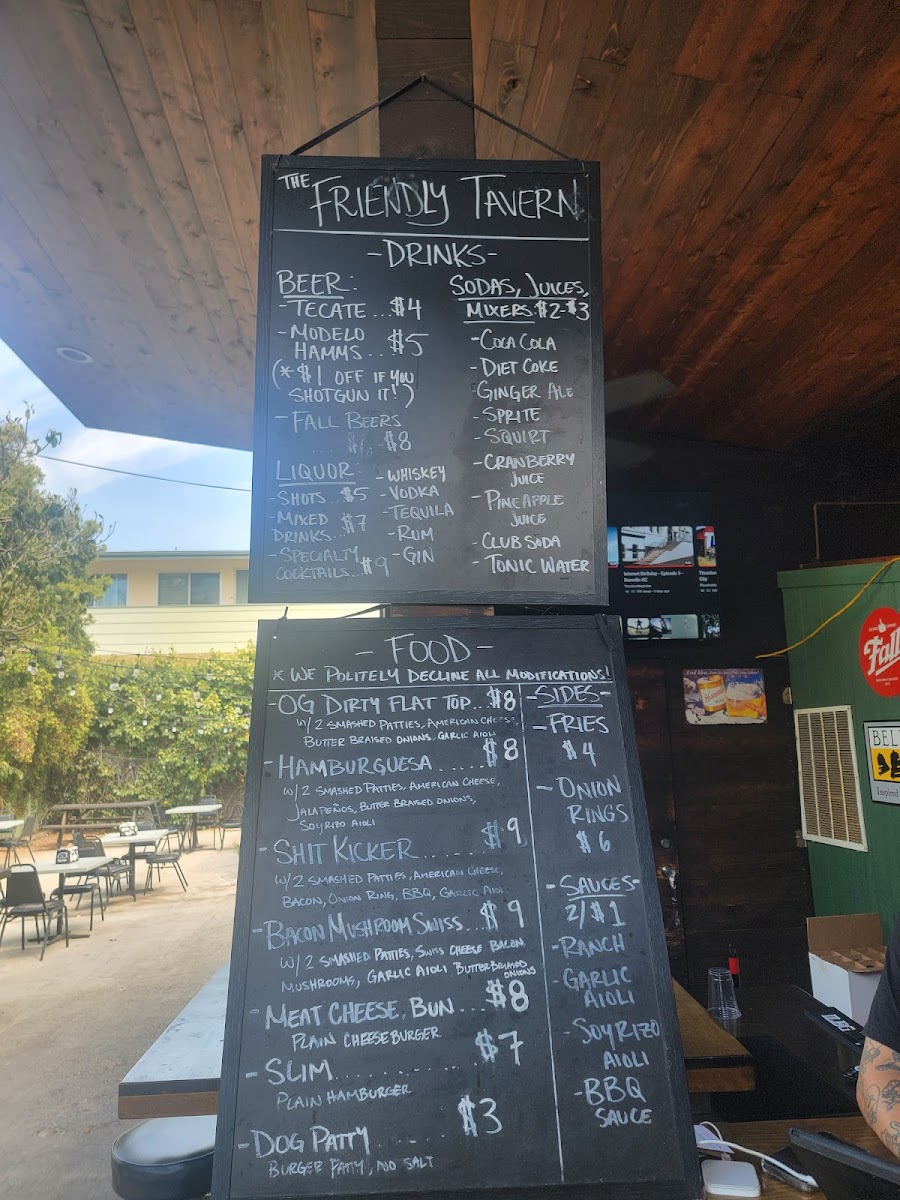 THE FRIENDLY TAVERN
-DRINKS-
BEER:
-TECATE...$4
-MODELO
HAMMS...$5
(*$1 OFF IF YOU
SHOTGUN IT!)
-FALL BEERS
$8
LIQUOR
-SHOTS...$5
-MIXED
DRINKS...$7
-SPECIALTY
COCKTAILS...$9
-WHISKEY
-VODKA
-TEQUILA
-RUM
-GIN
SODAS, JUICES,
MIXERS:$2-$3
-COCA COLA
-DIET COKE
-GINGER ALE
-SPRITE
-SQUIRT
-CRANBERRY
JUICE
-PINEAPPLE
JUICE
-CLUB SODA
-TONIC WATER
-FOOD-
*WE POLITELY DECLINE ALL MODIFICATIONS!
-OG DIRTY FLAT TOP...$8
W/2 SMASHED PATTIES, AMERICAN CHEESE,
BUTTER BRAISED ONIONS, GARLIC AIOLI
-HAMBURGUESA......$8
W/2 SMASHED PATTIES, AMERICAN CHEESE,
JALAPEÑOS, BUTTER BRAISED ONIONS,
SOYRIZO AIOLI
-SHIT KICKER.......$9
W/2 SMASHED PATTIES, AMERICAN CHEESE,
BACON, ONION RING, BBQ, GARLIC AIOLI
-BACON MUSHROOM SWISS...$9
W/2 SMASHED PATTIES, SWISS CHEESE BACON
MUSHROOMS, GARLIC AIOLI BUTTER BRAISED
ONIONS
-MEAT CHEESE BUN...$8
PLAIN CHEESEBURGER
-SLIM..........$7
PLAIN HAMBURGER
-DOG PATTY......$3
BURGER PATTY, NO SALT
-SIDES-
-FRIES
$4
-ONION
RINGS
$6
-SAUCES-
2/$1
-RANCH
-GARLIC
AIOLI
-SOYRIZO
AIOLI
-BBQ
SAUCE
Fall
BEL